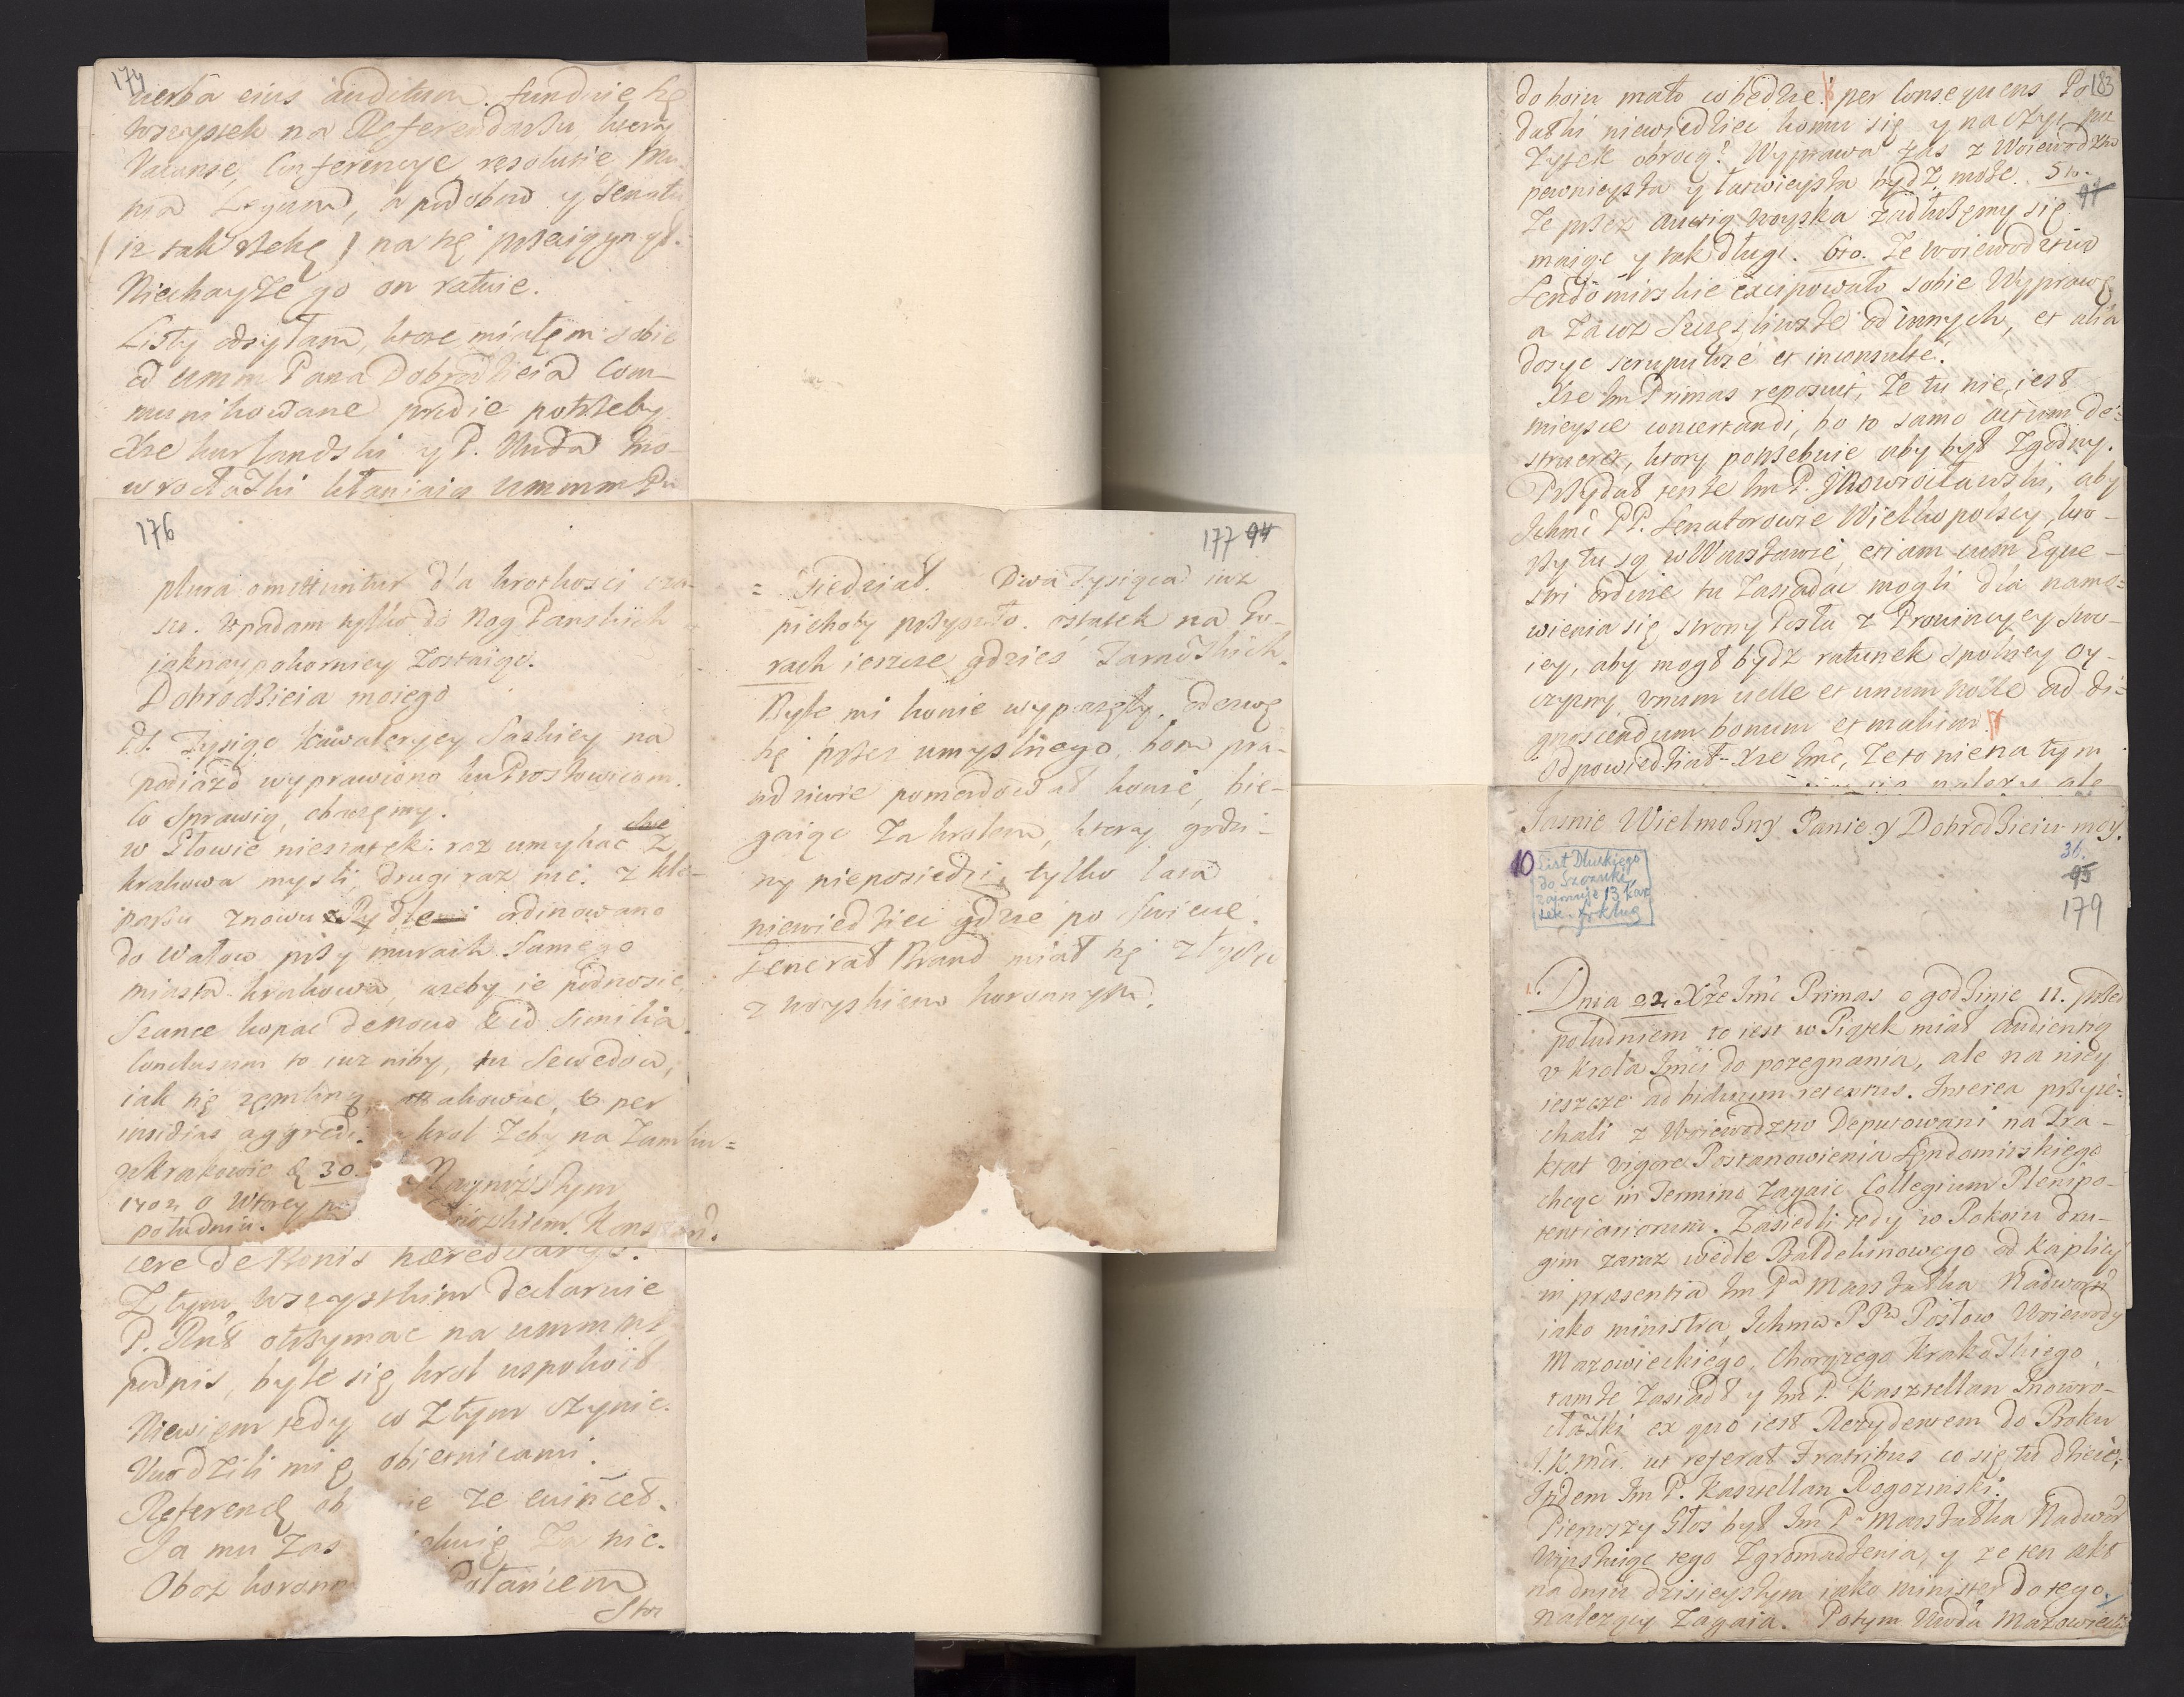 174
verba eius auditum. funduie sę
wszystek na Referendarżu, ktory
Vacanse, Conferencye, resolucie,
nia Legum, a podobno y Senatu
(iz tak rzekę) na się przeiąynył.
Niechayże go on ratuie.
Listy odsyłam, ktore miałęm sobie
od UMM Pana Dobrodzieia Com-
munikowane prodie potrzeby.
Xże kurlandski y P. Kno-
wrocłaski kłaniaią UMMM
176
plura omittuntur dla krotkosci cza-
su. Upadam tylko do Nog Panskich
jaknaypokorniey zostaiąc.
Dobrodzieia moiego
P.S. Tysiąc kawaleryey Saskiey na
podiazd wyprawiono ku Proszowicom.
Co sprawią, obaczęmy.
w Głowie niestatek: raz umykac z
krakowa mysli, drugi raz nie: z kle-
parzu znowu Rydle ordinowano
do wałow przy murach samego
miasta krakowa, azeby ie podnosic,
Szance kopac denovo & id similia.
Conclusum to iuz niby, tu Szwedow,
iak się zęmkną, attakowac, & per
insidias aggredi. krol żeby na Zamku=
w Krakowie d 30.
1702 o wtorey po Naynizszym
południu.
cere de Bonis haereditarys.
Z tym wszystkim declaruie
P. otrzymac na UMM
podpis, byle się krol uspokoił
Niewiem tedy co z tym czynic.
Uwodzili mię obietnicami.
Referend ob ie ze
Ja mu zas za nic.
Oboz koronn Połańcem
Stoi
177 94
= siedział. Dwa Tysiąca iuz
piechoty przyszło. ostatek na Go-
rach ieszcze gdzies Tarnoskich.
Byle mi konie wyprzęgły, oderwę
się przez umyslnego, bom pra-
wdziwie pomordował konie, bie-
gaiąc za krolem, ktory godzi-
ny nieposiedzi, tylko lata
niewiedziec gdzie po swiecie.
Generał Brand miał się złączyc
z woyskiem koronnym.
183
do boiu mało co będzie. per consequens Po
datki niewiedziec komu się y na czyi poz
zytek obrocą? Wyprawa zas z Woiewodztw
pewnieysza y łatwieysza bydz może. 5to.
94
Ze przez auctią woyska zadłużęmy się
maiąc y tak długi. 6to. Ze woiewodztwo
Sendomirskie excipowało sobie Wyprawę
a zawsz Szczęsliwsze od innych, et alia
dosyc scrupulose et inconsulte.
Xże Im Primas reposuit, ze tu nie iest
mieysce concertandi, bo to samo actum de-
strueret, ktory potrzebuie aby był zgodny.
Przydał tenże Im P. Inowrocławski, aby
Ichmc PP. Senatorowie Wielkopolscy, kto-
rzy tu są w Warszawie, etiam cum Eque-
stri ordine tu zasiadac mogli dla namo=
wienia się strony Posła z Prowincyey swo-
iey, aby mogł bydz ratunek spolney Oy-
czyzny unum velle et unum nolle ad di-
gnoscendum bonum et malum.
Odpowiedział Xże Imc, ze to nie na tym
Jasnie Wielmożny Panie y Dobrodzieiu moy.
10
List Dłuskiego
do Szczuki
zajmuje 13 kar
tek
36.
95
179
Dnia 22. Xże Imc Primas o godzinie 11. przed
południem to iest w Piątek miał audientią
u Krola Imci do pozegnania, ale na niey
ieszcze ad biduum retentus. Interea przyie-
chali z Woiewodztw Deputowani na Tra-
ktat vigore Postanowienia Sendomirskiego
chcąc in Termino zagaic Collegium Plenipo-
tentiariorum. Zasiedli tedy w Pokoiu dru-
gim zaraz wedle Baldekinowego od kaplicy
in praesentia Im Pa Marszałka Nadworn
iako ministra, Ichmw PPw Posłow Woiewody
Mazowieckiego, Chorążego Krakoskiego,
tamże zasiadł y Im P. Kasztellan Inowro-
cłaski ex quo iest Rezydentem do Boku
J.K.Mci. ut referat Fratribus co się tu dzieie,
Ibidem Im P. Kasztellan Rogozinski.
Pierwszy Głos był Im Pa Marszałka Nadwor
winszuiąc tego Zgromadzenia, y ze ten akt
na dniu dzisieyszym iako minister do tego
nalezący zagaia. Potym Woda Mazowiecki